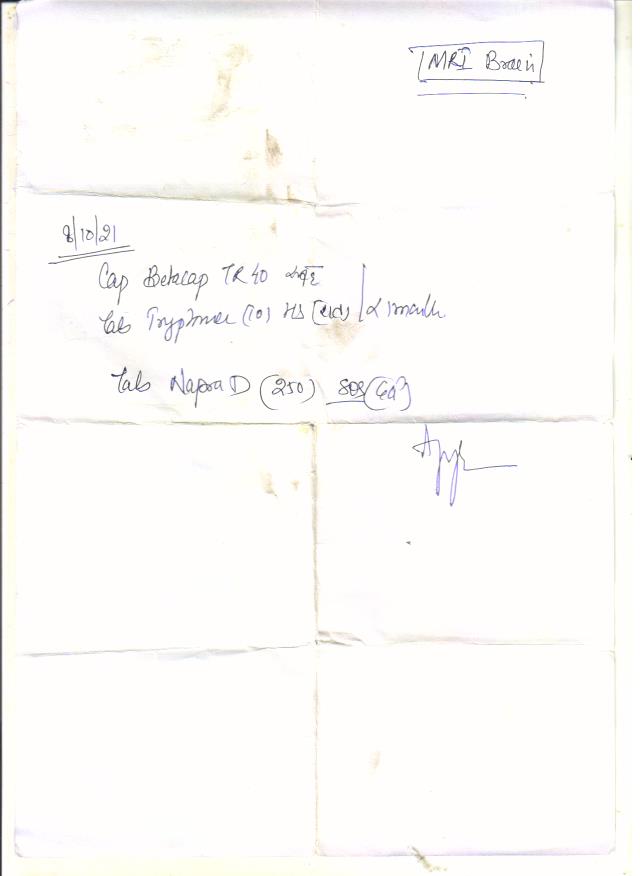 MRI Brain
8/10/21
Cap Betacap TR 40 सुबह
Tab Tryptomer (10) HS (रात) x 1 month
Tab Napra D (250) SOS